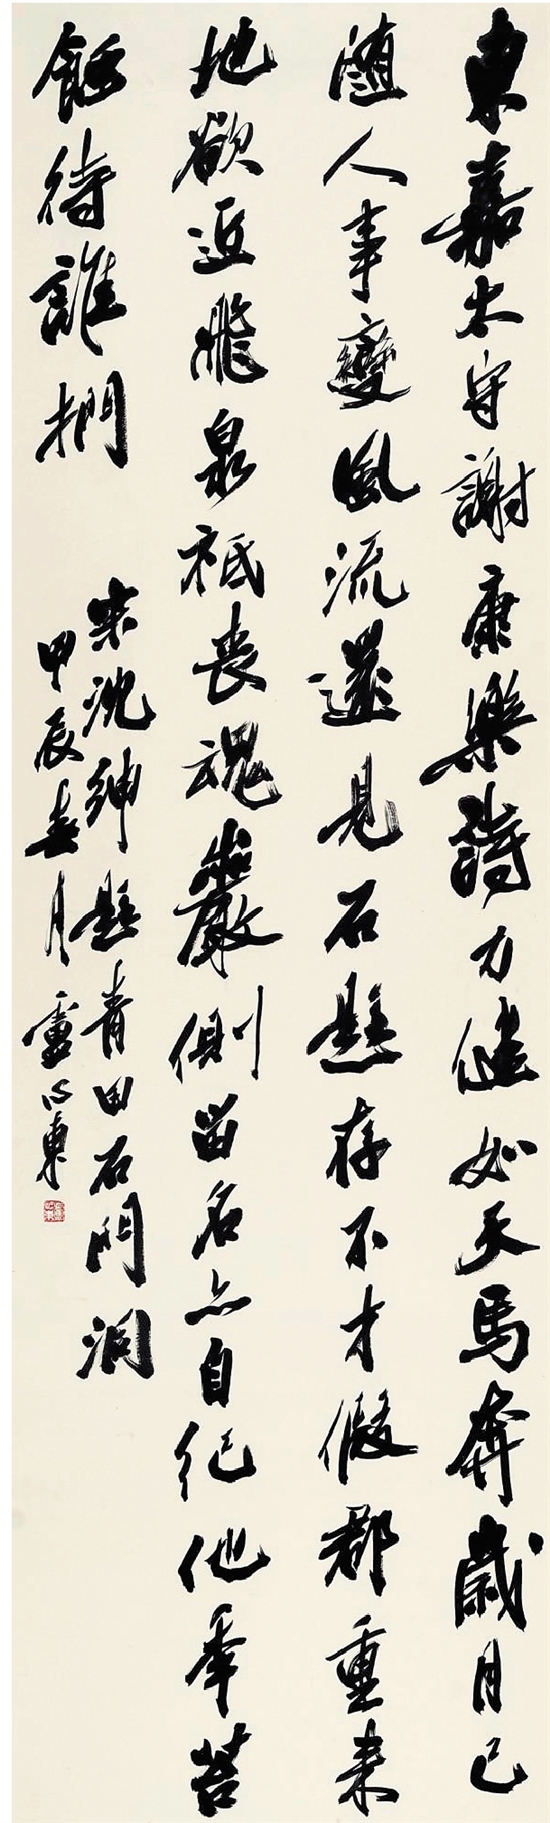 東嘉太守謝康樂詩力健如天馬奔歲月已
隨人事變風流還見石題存不才假郡重来
地欲近飛泉祗喪魂巖側留名亦自紀他年苔
蝕待誰捫
宋沈紳題青田石門洞
甲辰春月盧東